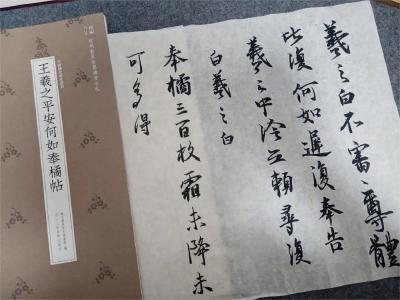 王羲之平安何如奉橘帖
羲之白不審尊體
比復何如遲復奉告
羲之中冷無賴尋復
白羲之白
奉橘三百枚霜未降未
可多得